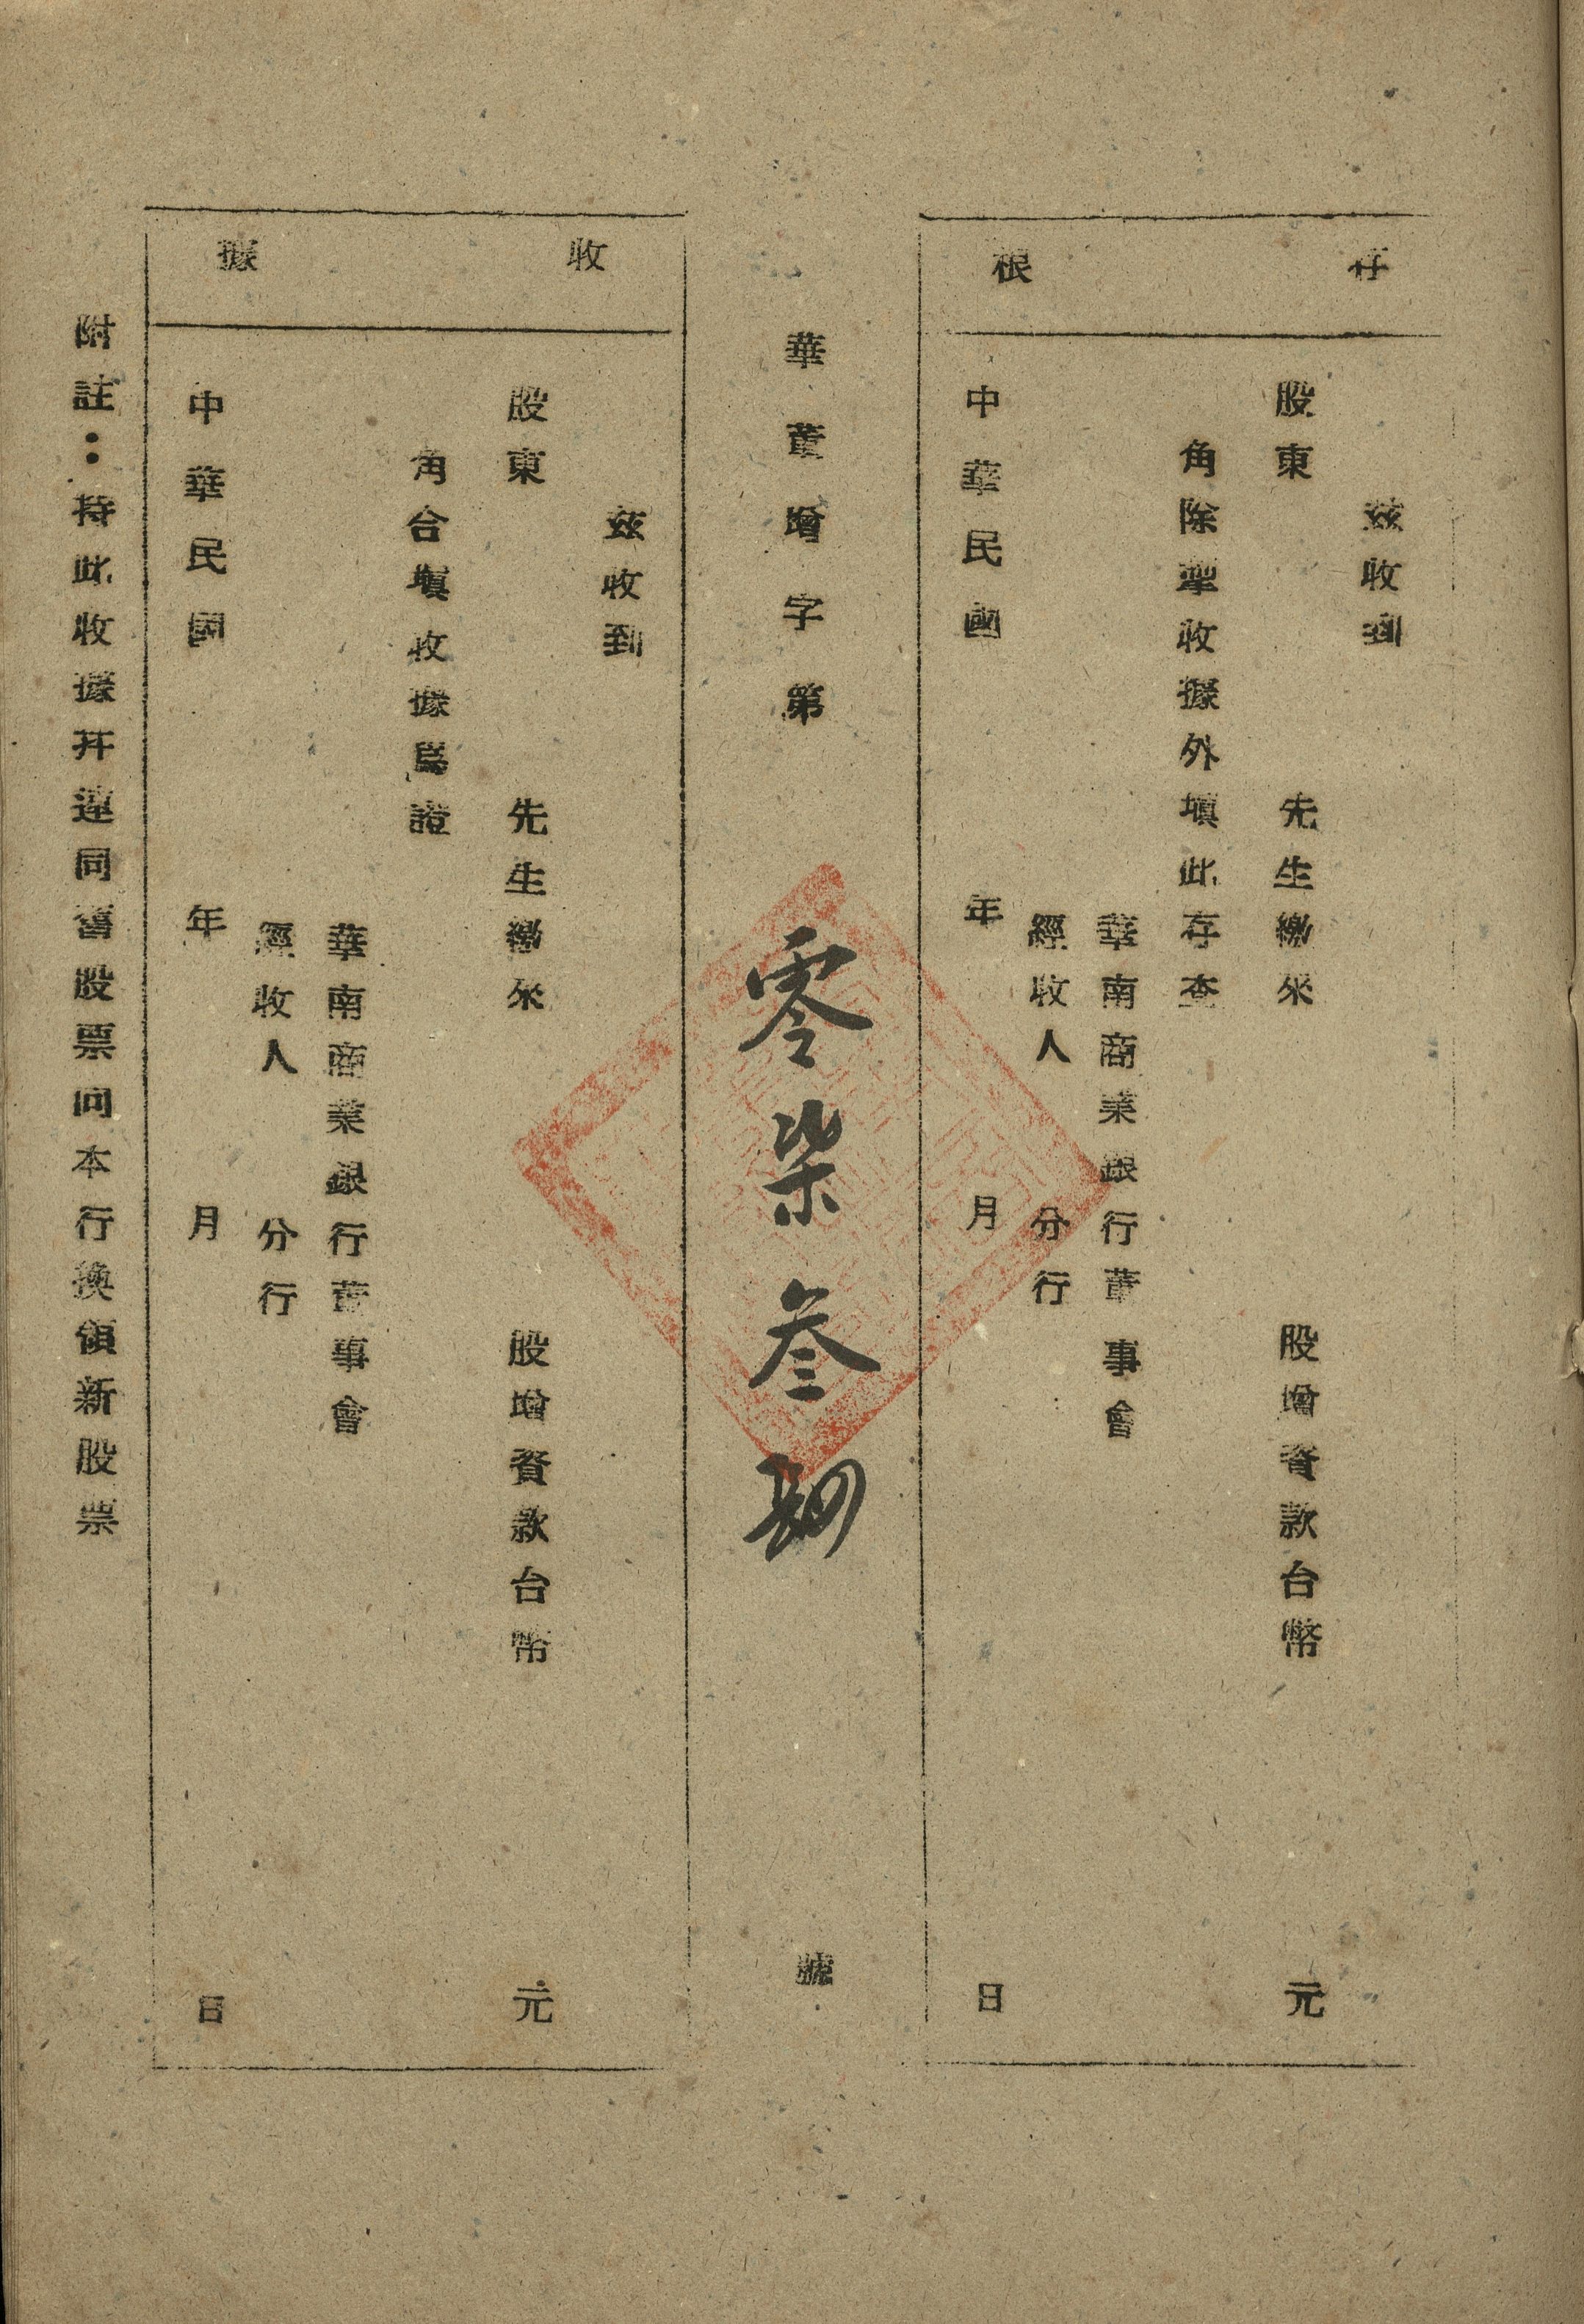 存根
茲收到
股東 先生繳來 股增資款台幣 元
角除掣收據外填此存查
華南商業銀行董事會
經收人 分行
中華民國 年 月 日
華董增字第零柒叁肆號
收據
茲收到
股東 先生繳來 股增資款台幣 元
角合填收據爲證
華南商業銀行董事會
經收人 分行
中華民國 年 月 日
附註：持此收據幷連同舊股票向本行換領新股票